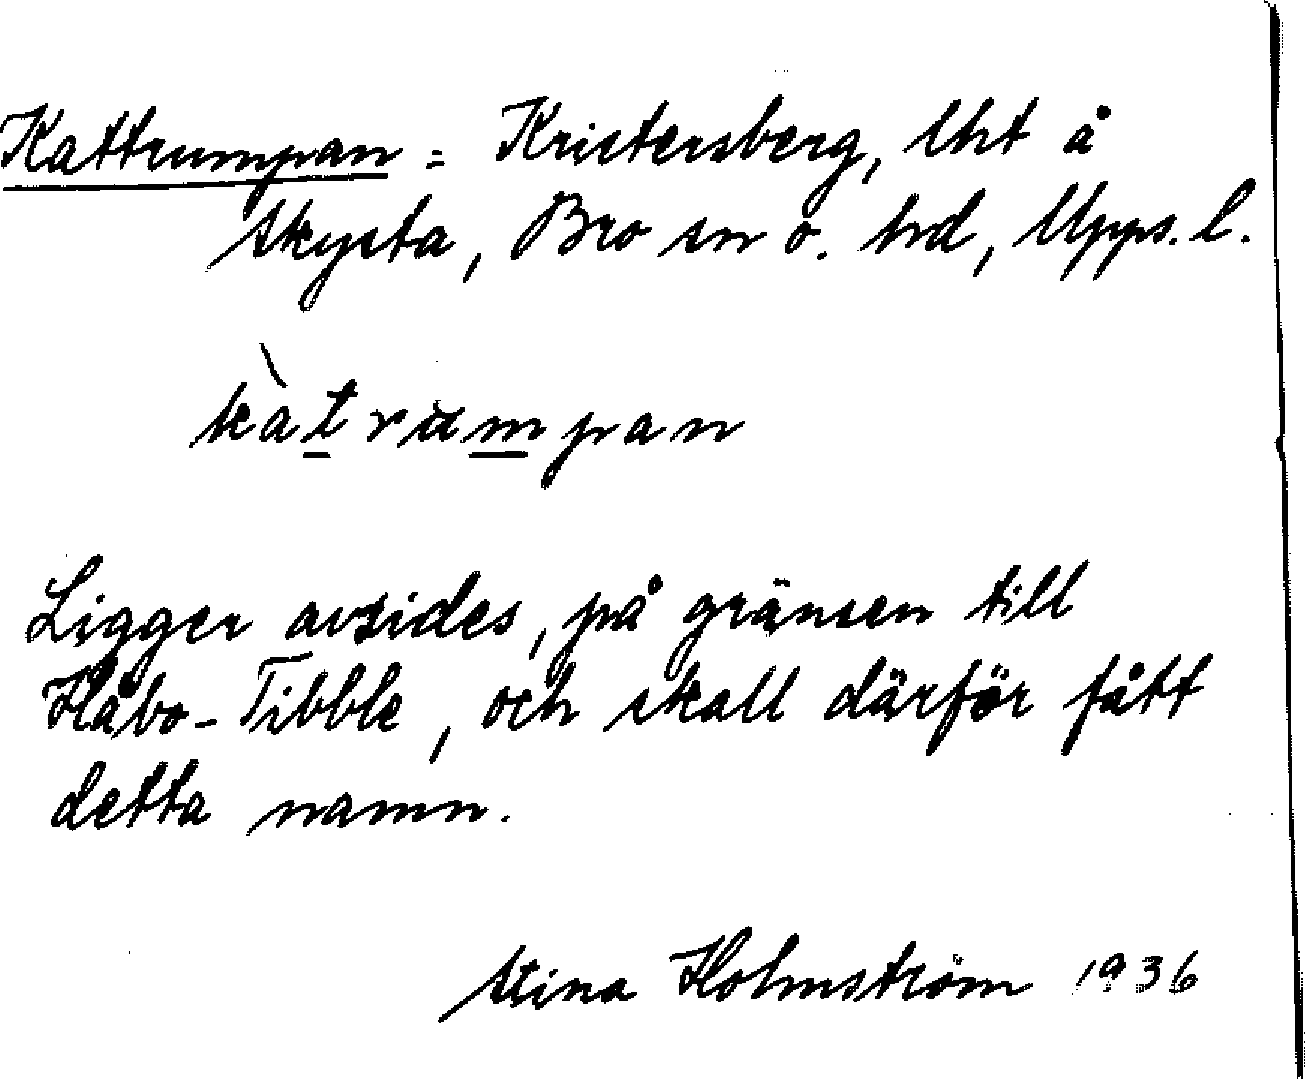 Kattrumpan = Kristersberg, lht å
Skysta, Bro sn o. hd, Upps. l.
kàtrùmpan
Ligger avsides, på gränsen till
Håbo-Tibble, och skall därför fått
detta namn.
Stina Holmström 1936